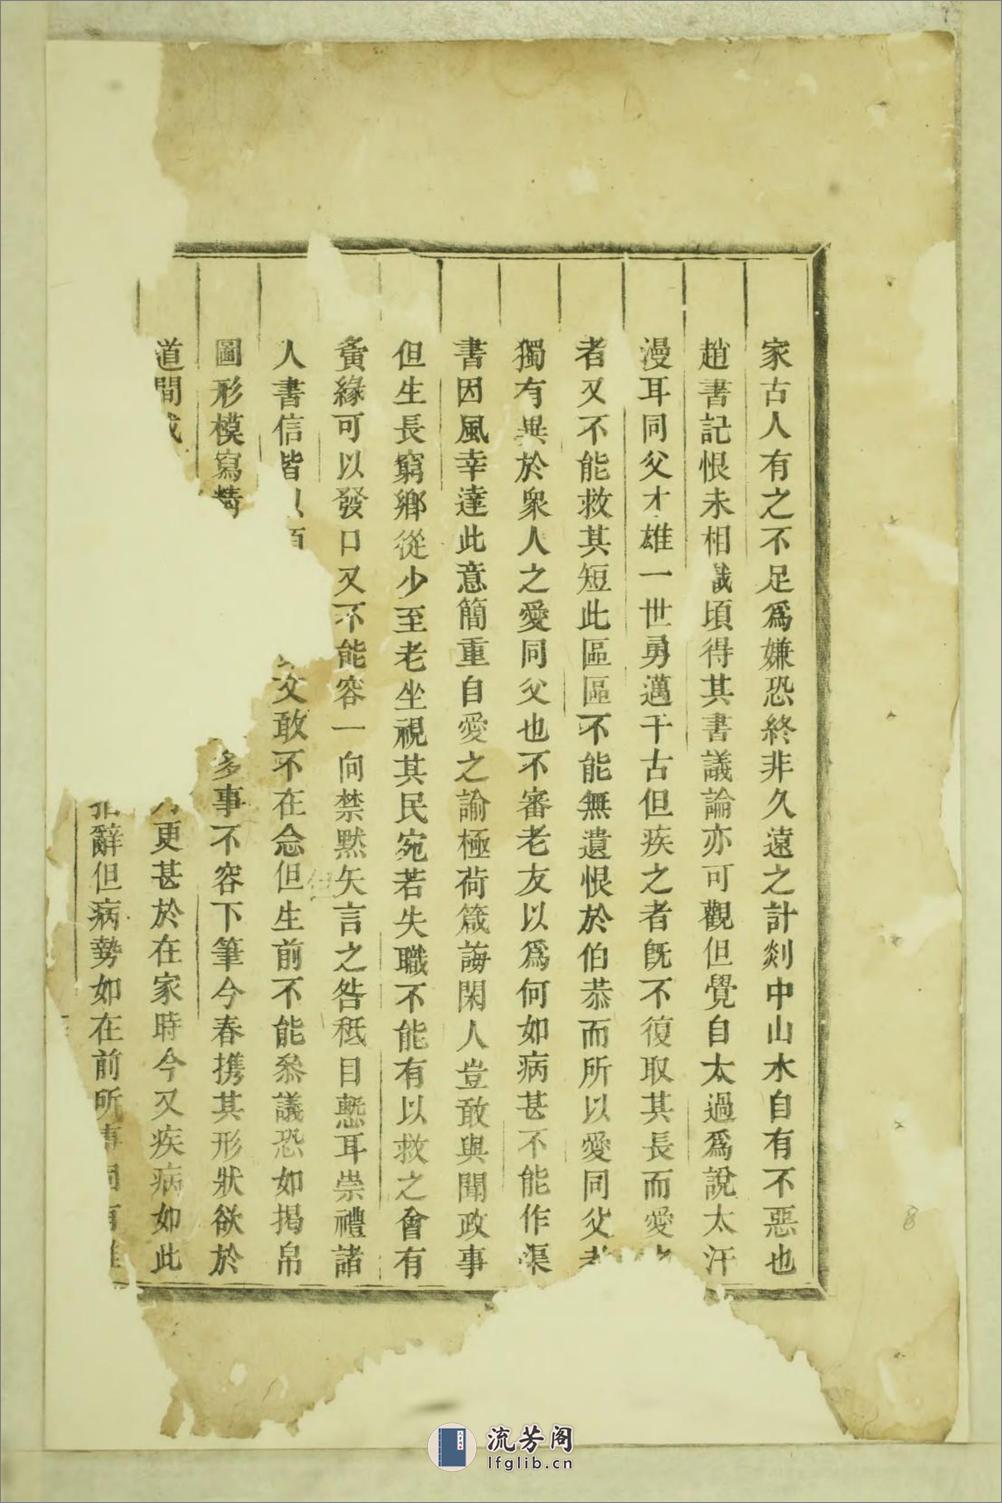 家古人有之不足爲嫌恐終非久遠之計剡中山水自有不惡也
趙書記恨未相識頃得其書議論亦可觀但覺自太過爲說太汗
漫耳同父才雄一世勇邁千古但疾之者旣不復取其長而愛
者又不能救其短此區區不能無遺恨於伯恭而所以愛同父者
獨有異於衆人之愛同父也不審老友以爲何如病甚不能作渠
書因風幸達此意簡重自愛之諭極荷箴誨閑人豈敢與聞政事
但生長窮鄉從少至老坐視其民宛若失職不能有以救之會有
夤緣可以發口又不能容一向禁默失言之咎秪自慙耳崇禮諸
人書信皆
父敢不在念但生前不能叅議恐如揭帛
圖形模寫
多事不容下筆今春携其形狀欲於
道間
更甚於在家時今又疾病如此
辭但病勢如在前所
流芳阁
lfglib.cn